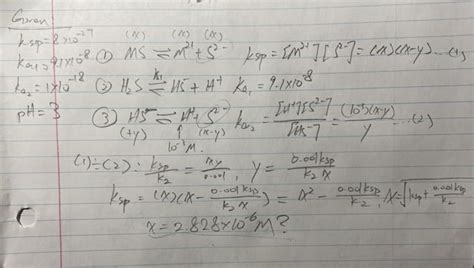 Given
ksp=8×10⁻²⁷
ka₁=9.1×10⁻⁸
ka₂=1×10⁻¹⁸
pH=3
(x) (x) (x)
① MS ⇌ M²⁺+S²⁻ ksp=[M²⁺][S²⁻]=(x)(x-y)...(1)
② H₂S ⇌ HS⁻+H⁺ Ka₁=9.1×10⁻⁸
k₁
③ HS⁻ ⇌ H⁺+S²⁻ ka₂=[H⁺][S²⁻]/[HS⁻]=(10⁻³)(x-y)/y ...(2)
(+y) (x-y)
10⁻³M.
(1)÷(2): ksp/k₂=xy/0.001, y=0.001ksp/k₂x
ksp=(x)(x-0.001ksp/k₂x)=x²-0.001ksp/k₂, x=√ksp+0.001ksp/k₂
x=2.828×10⁻⁶M?